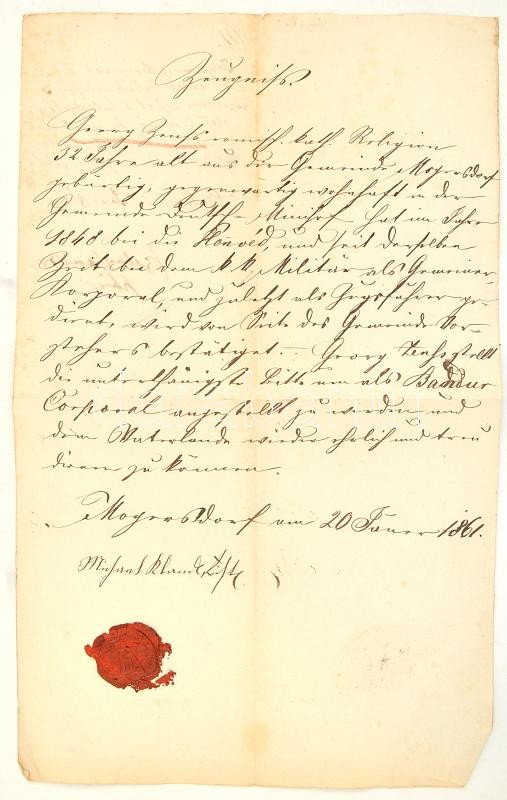 Zeugniß.
Georg Zenß römisch. kath. Religion
32 Jahre alt aus der Gemeinde Mogersdorf
gebürtig, gegenwärtig wohnhaft in der
Gemeinde Deutsch-Minihof hat im Jahre
1848 bei die Honvéd, und seit derselben
Zeit bei dem k k Militär als Gemeiner
Korporal, und zuletzt als Zugsführer ge-
dient, wird von Seite des Gemeinde Vor-
stehers bestätiget. — Georg Zenß stellt
die unterthänigste Bitte um als Bandur
Corporal angestellt zu werden und
dem Vaterlande wieder ehrlich und treu
dienen zu können.
Mogersdorf am 20 Janer 1861.
Michael